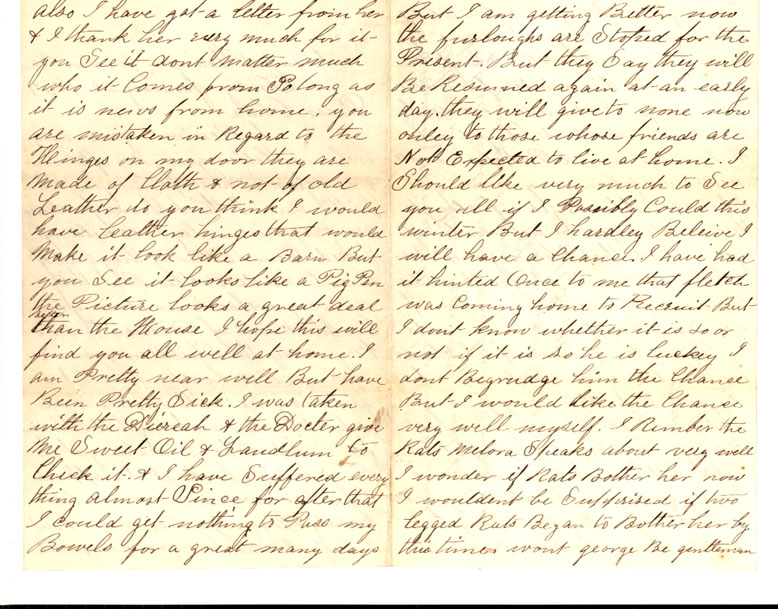 also I have got a letter from her
& I thank her every much for it
you See it dont matter much
who it Comes from So long as
it is news from home. you
are mistaken in Regard to the
Hinges on my door they are
Made of Cloth & not of old
Leather do you think I would
have leather hinges that would
Make it look like a Barn But
you See it looks like a Pig Pen
the Picture looks a great deal
than the House I hope this will
find you all well at home. I
am Pretty near well But have
Been Pretty Sick. I was taken
with the Diereah & the Docter give
Me Sweet Oil & Laudlum to
Check it. & I have Suffered every
thing almost Since for after that
I could get nothing to Pass my
Bowels for a great many days
But I am getting Better now
the furloughs are Stoped for the
Present. But they Say they will
Be Resumed again at an early
day. they will give to none now
onley to those whose friends are
Not Expected to live at home. I
Should like very much to See
you all if I Possibly Could this
winter But I hardley Beleive I
will have a Chance. I have had
it hinted Once to me that fletch
was Coming home to Recruit But
I dont know whether it is so or
not if it is so he is luckey I
dont Begrudge him the Chance
But I would like the Chance
very well myself. I Rember the
Rats Melora Speaks about very well
I wonder if Rats Bother her now
I wouldent be Surprised if two
legged Rats Began to Bother her by
this time wont george Be gentleman